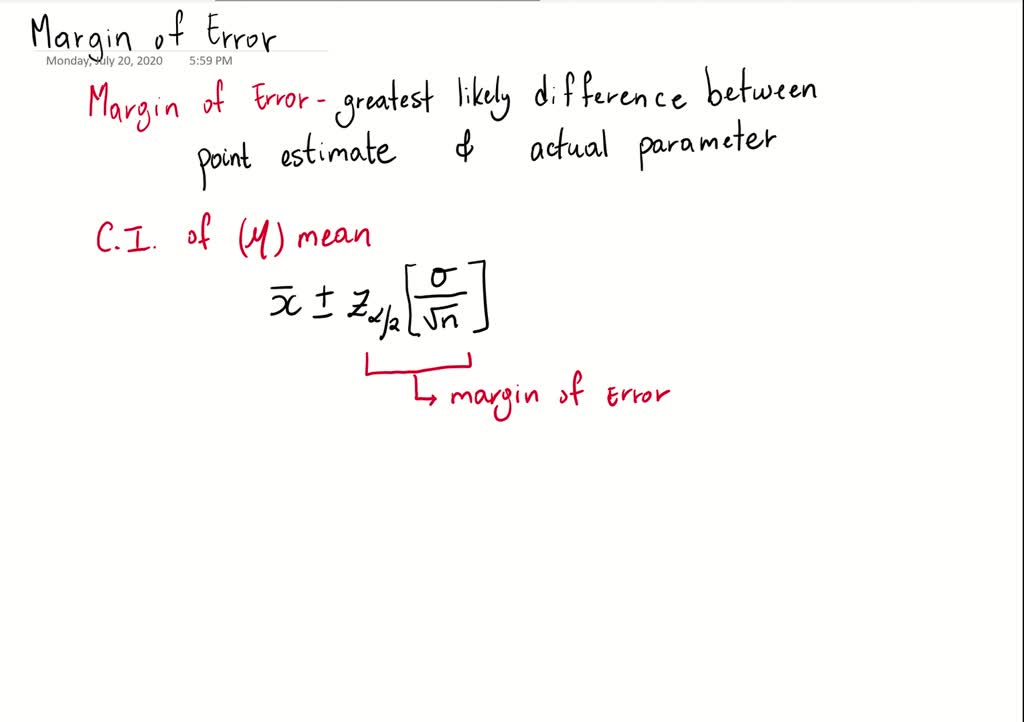 Margin of Error
Monday, July 20, 2020 5:59 PM
Margin of Error - greatest likely difference between
point estimate & actual parameter
C.I. of (μ) mean
x̄ ± Z α/2 [σ/√n]
↳ margin of Error